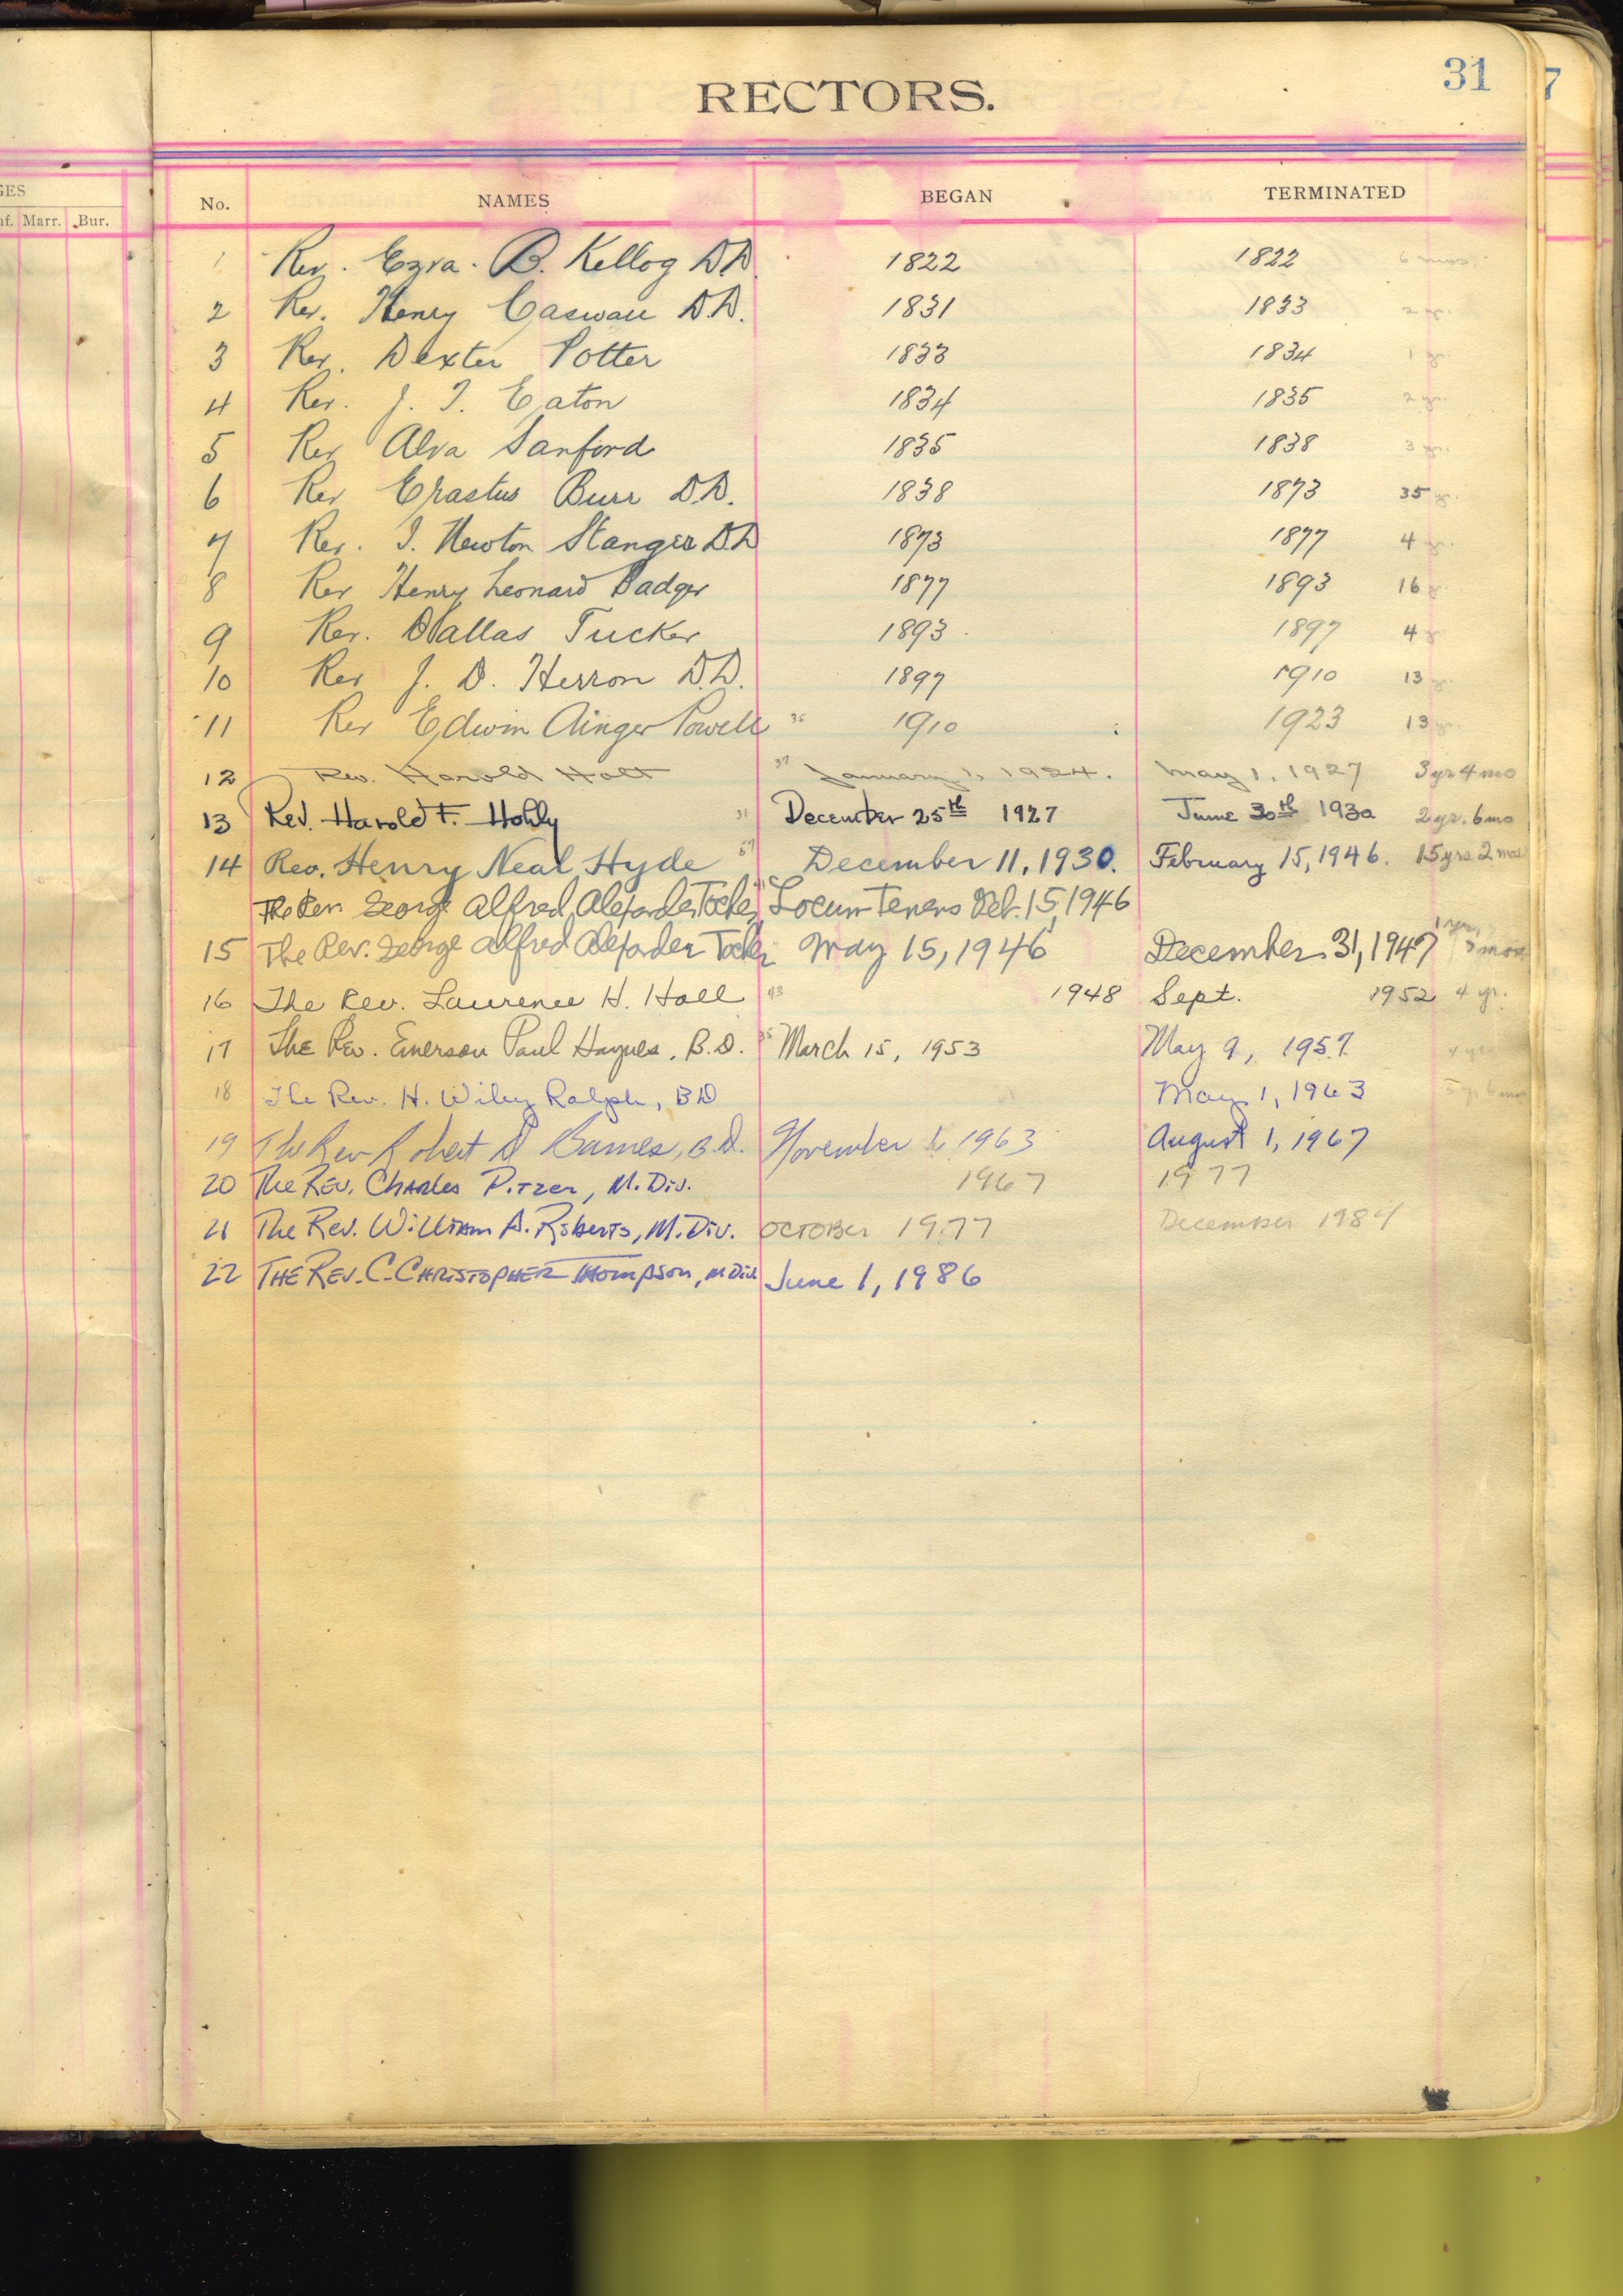 31
7
RECTORS.
GES
nf. Marr. Bur.
No. NAMES BEGAN TERMINATED
1 Rev. Ezra. B. Kellog D.D. 1822 1822 6 mos.
2 Rev. Henry Caswall D.D. 1831 1833 2 yr.
3 Rev. Dexter Potter 1833 1834 1 yr.
4 Rev. J. T. Eaton 1834 1835 2 yr.
5 Rev Alva Sanford 1835 1838 3 yr.
6 Rev Erastus Burr D.D. 1838 1873 35 yr.
7 Rev. I. Newton Stanger D.D 1873 1877 4 yr.
8 Rev Henry Leonard Badger 1877 1893 16 y.
9 Rev. Dallas Tucker 1893 1897 4 y.
10 Rev J. D. Herron D.D. 1897 1910 13 y.
11 Rev Edwin Ainger Powell 36 1910 1923 13 yr.
12 Rev. Harold Holt 37 January 1, 1924. May 1, 1927 3 yr 4 mo
13 Rev. Harold F. Hohly 31 December 25th 1927 June 30th 1930 2 yr. 6 mo
14 Rev. Henry Neal Hyde 69 December 11, 1930. February 15, 1946. 15 yrs 2 mos
The Rev. George Alfred Alexander Locum Tenens 15, 1946
15 The Rev. George Alfred Alexander May 15, 1946 December 31, 1947 1 yr,
16 The Rev. Laurence H. Hall 43 1948 Sept. 1952 4 yr.
17 The Rev. Emerson Paul Haynes, B.D. 35 March 15, 1953 May 9, 1957 4 yrs
18 The Rev. H. Wiley Ralph, BD May 1, 1963 5 yr 6 mos
19 The Rev Robert D Barnes, B.D. November 1, 1963 August 1, 1967
20 The Rev. Charles Pitzer, M. Div. 1967 1977
21 The Rev. William A. Roberts, M. Div. October 1977 December 1984
22 The Rev. C. Christopher Thompson, M Div June 1, 1986